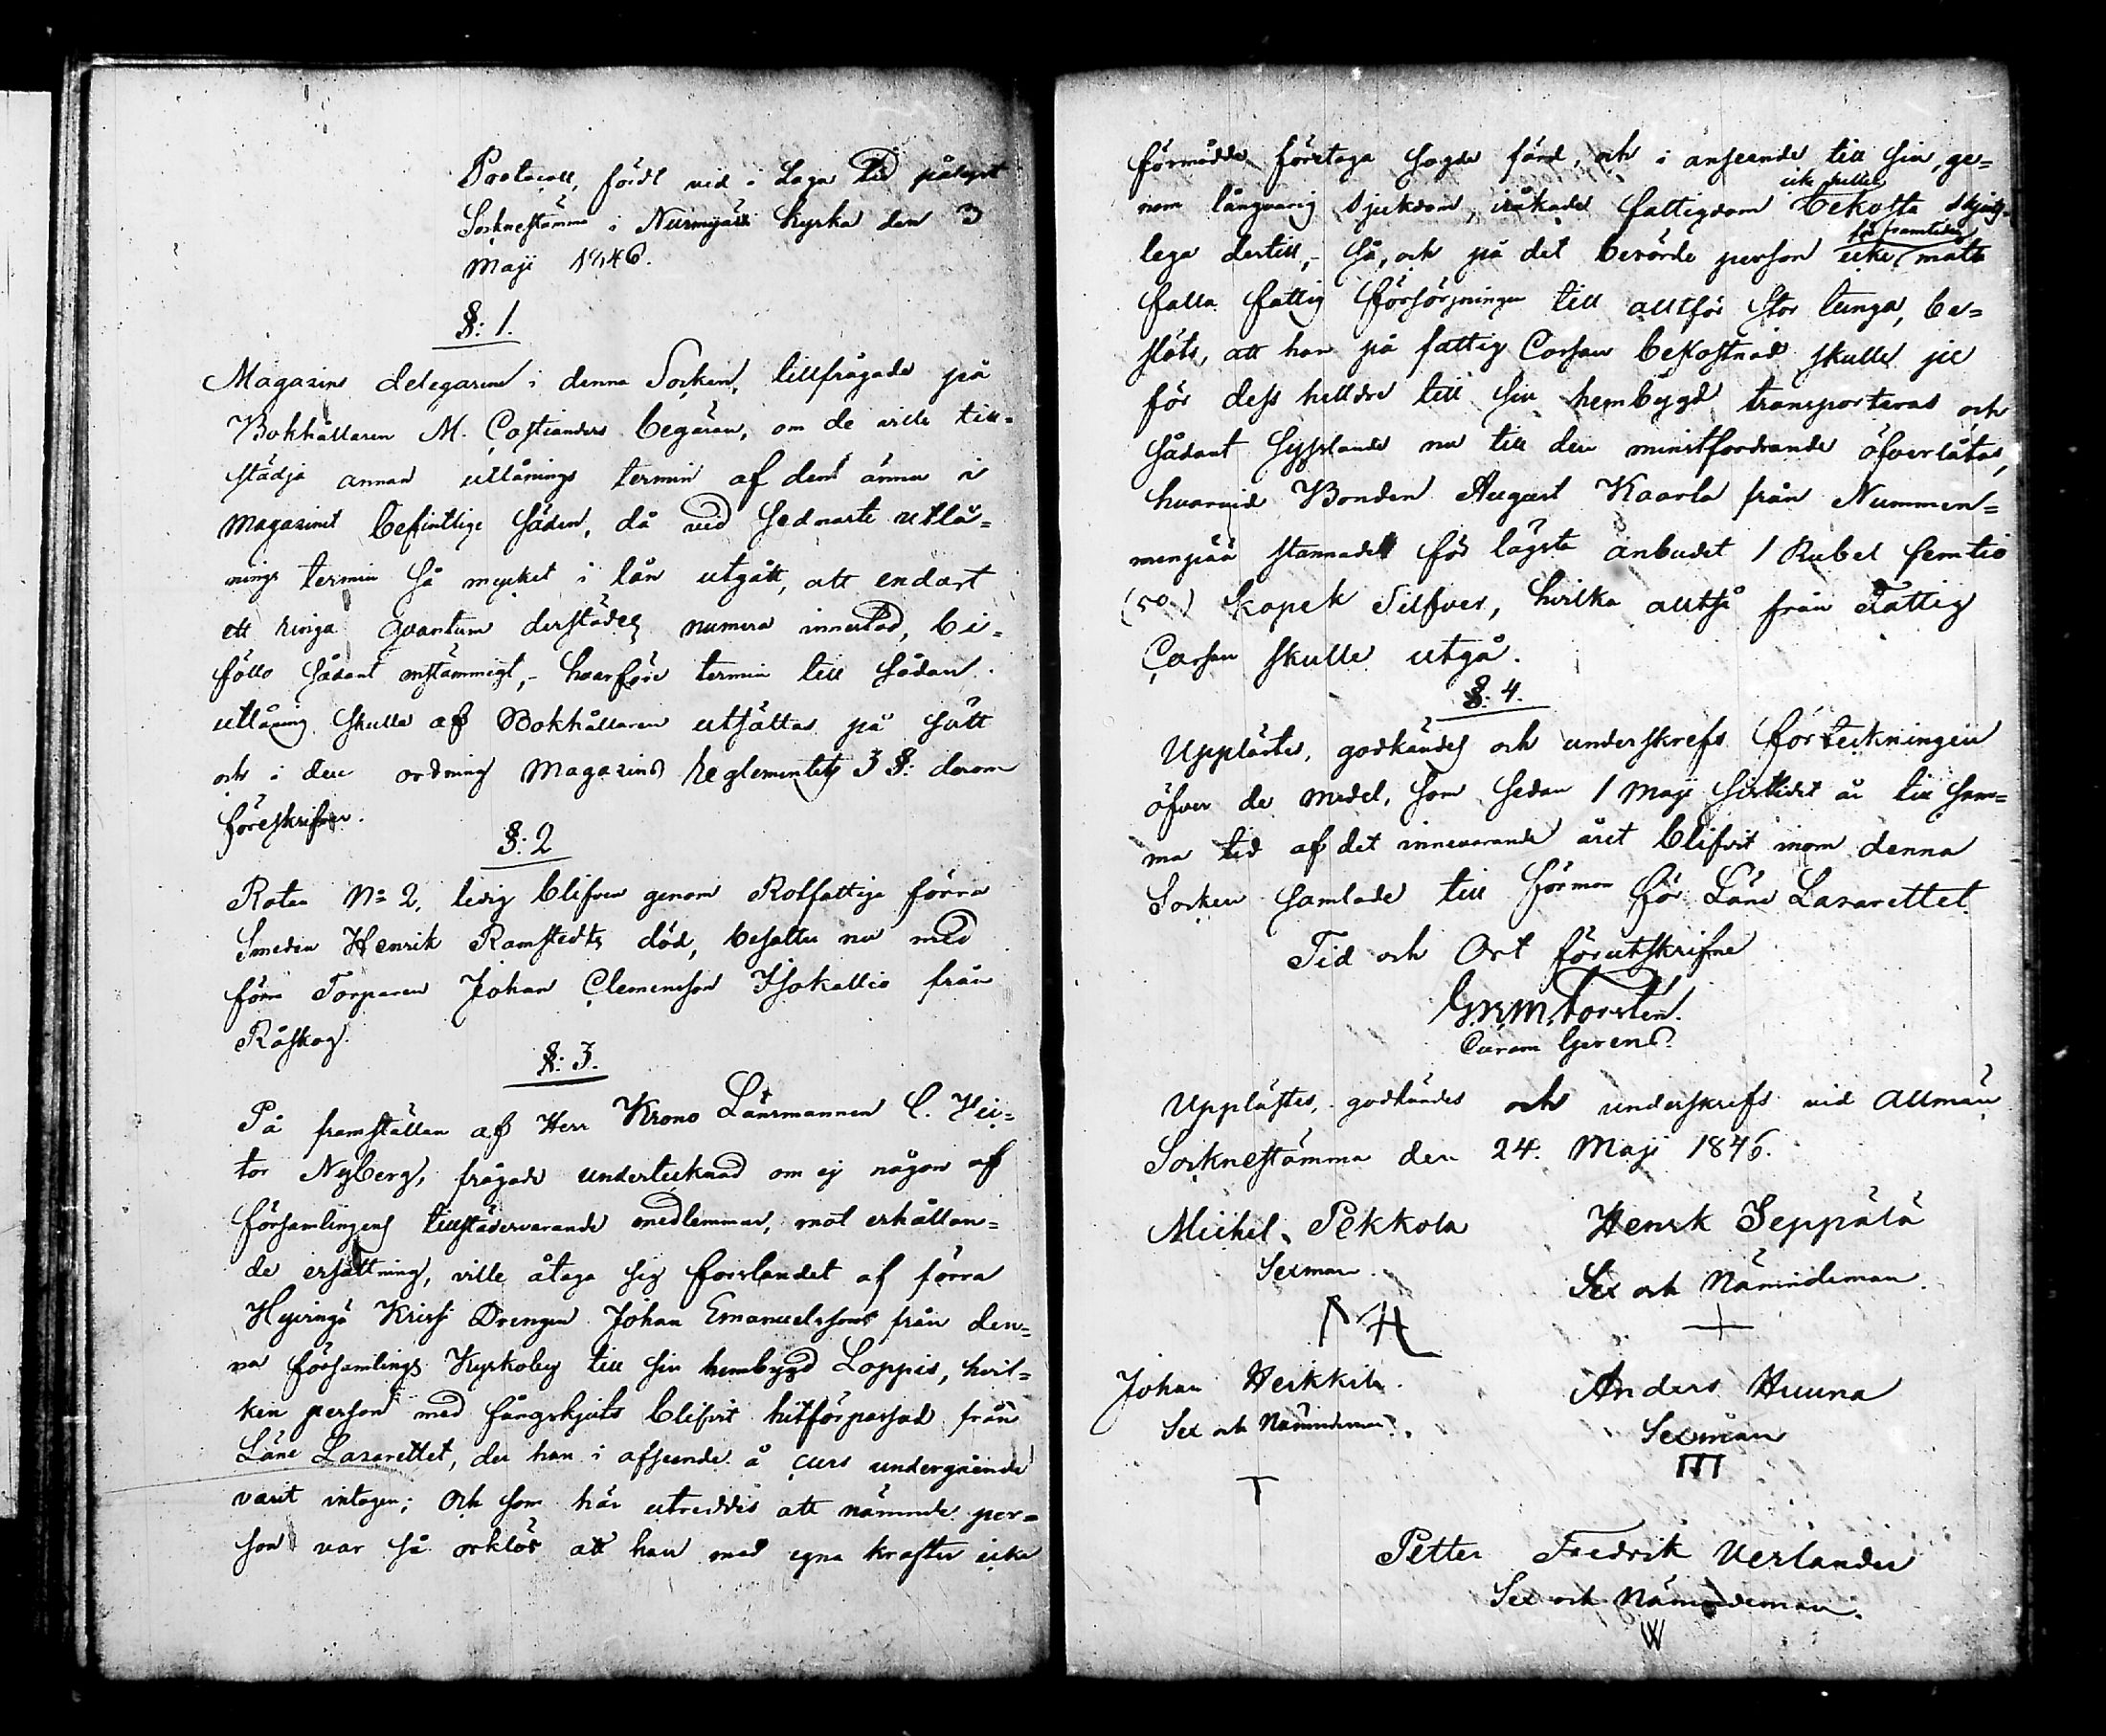 Protocoll, fördt vid i Laga tid pålyst
Socknestämma i Nurmijärvi Kyrka den 3
Maji 1846.
§: 1.
Magasins delegarena i denna Socken, tillfrågade på
Bokhållaren M. Costianders begäran, om de ville till-
städja annan utlånings termin af den ännu i
Magasinet befintlige Säden, då vid sednaste utlå=
nings termin så mycket i lån utgått, att endast
ett ringa quantum derstädes numera innestod, bi=
föllo sådant enstämmigt,- hvarföre termin till sådan
utlåning skulle af Bokhållaren utsättas på sätt
och i den ordning Magasins Reglementets 3 §: derom
föreskrifver.
§: 2
Roten No 2, ledig blifven genom Rotfattige förra
Smeden Henrik Ramstedts död, besattes nu med
förra Torparen Johan Clemensson Isokallio från
Råskog.
§: 3.
På framställan af Herr Krono Länsmannen C. Vic=
tor Nyberg, frågade undertecknad om ej någon af
församlingens tillstädesvarande medlemmar, mot erhållan=
de ersättning, ville åtaga sig forslandet af förra
Hyvinge Krists Drengen Johan Emanuelsson från den=
na församlings Kyrkoby till sin hembygd Loppis, hvil=
ken person med fångskjuts blifvit hitförpassad från
Läne Lazarettet, der han i afseende å curs undergående
varit intagen; Och som här utreddes att nämnde per=
son var så orklös att han med egna krafter icke
förmådde företaga sagde färd, och i anseende till sin, ge=
nom långvarig sjukdom, iråkade fattigdom icke heller bekosta skjuts=
lega dertill,- Så, och på det berörde person icke för framtiden måtte
falla fattig försörjningen till alltför stor tunga, be=
slöts, att han på fattig Cassan bekostnad skulle ju
för dess helldre till sin hembygd transporteras och
sådant Sysslande nu till den minstfordrande öfverlåtas,
hvarvid Bonden August Kaarla från Nummen=
menpää stannade för lägsta anbudet 1 Rubel femtio
(50) kopek Silfver, hvilka alltså från Fattig
Cassan skulle utgå.
§: 4.
Upplästes, godkändes och underskrefs förteckningen
öfver de medel, som sedan 1 Maji sistlidit år till sam=
ma tid af det innevarande året blifvit inom denna
Socken samlade till förmon för Läne Lazarettet.
Tid och Ort förutskrifne
G. W. M. Forstén.
Curam Gerens.
Upplästes, godkändes och underskrefs vid Allmän
Socknestämma den 24. Maji 1846.
Michel Pekkola Henrk Seppälä
Sexman. Sex och Nämndeman.
Johan Heikkilä. Anders Huuna
Sex och Nämndeman. Sexman
Petter Fredrik Verlander
Sex och Nämndeman.